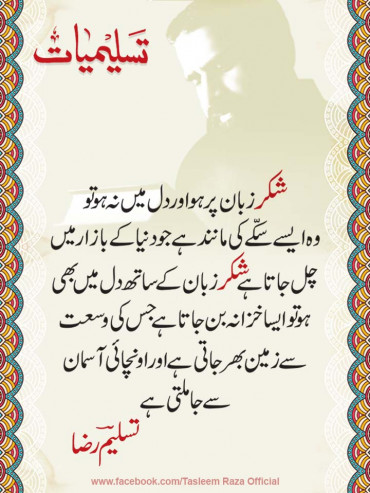 تسلیمیات
شکر زبان پر ہو اور دل میں نہ ہو تو
وہ ایسے سکّے کی مانند ہے جو دنیا کے بازار میں
چل جاتا ہے شکر زبان کے ساتھ دل میں بھی
ہو تو ایسا خزانہ بن جاتا ہے جس کی وسعت
سے زمین بھر جاتی ہے اور اونچائی آسمان
سے جا ملتی ہے
تسلیم رضا
www.facebook.com/Tasleem Raza Official